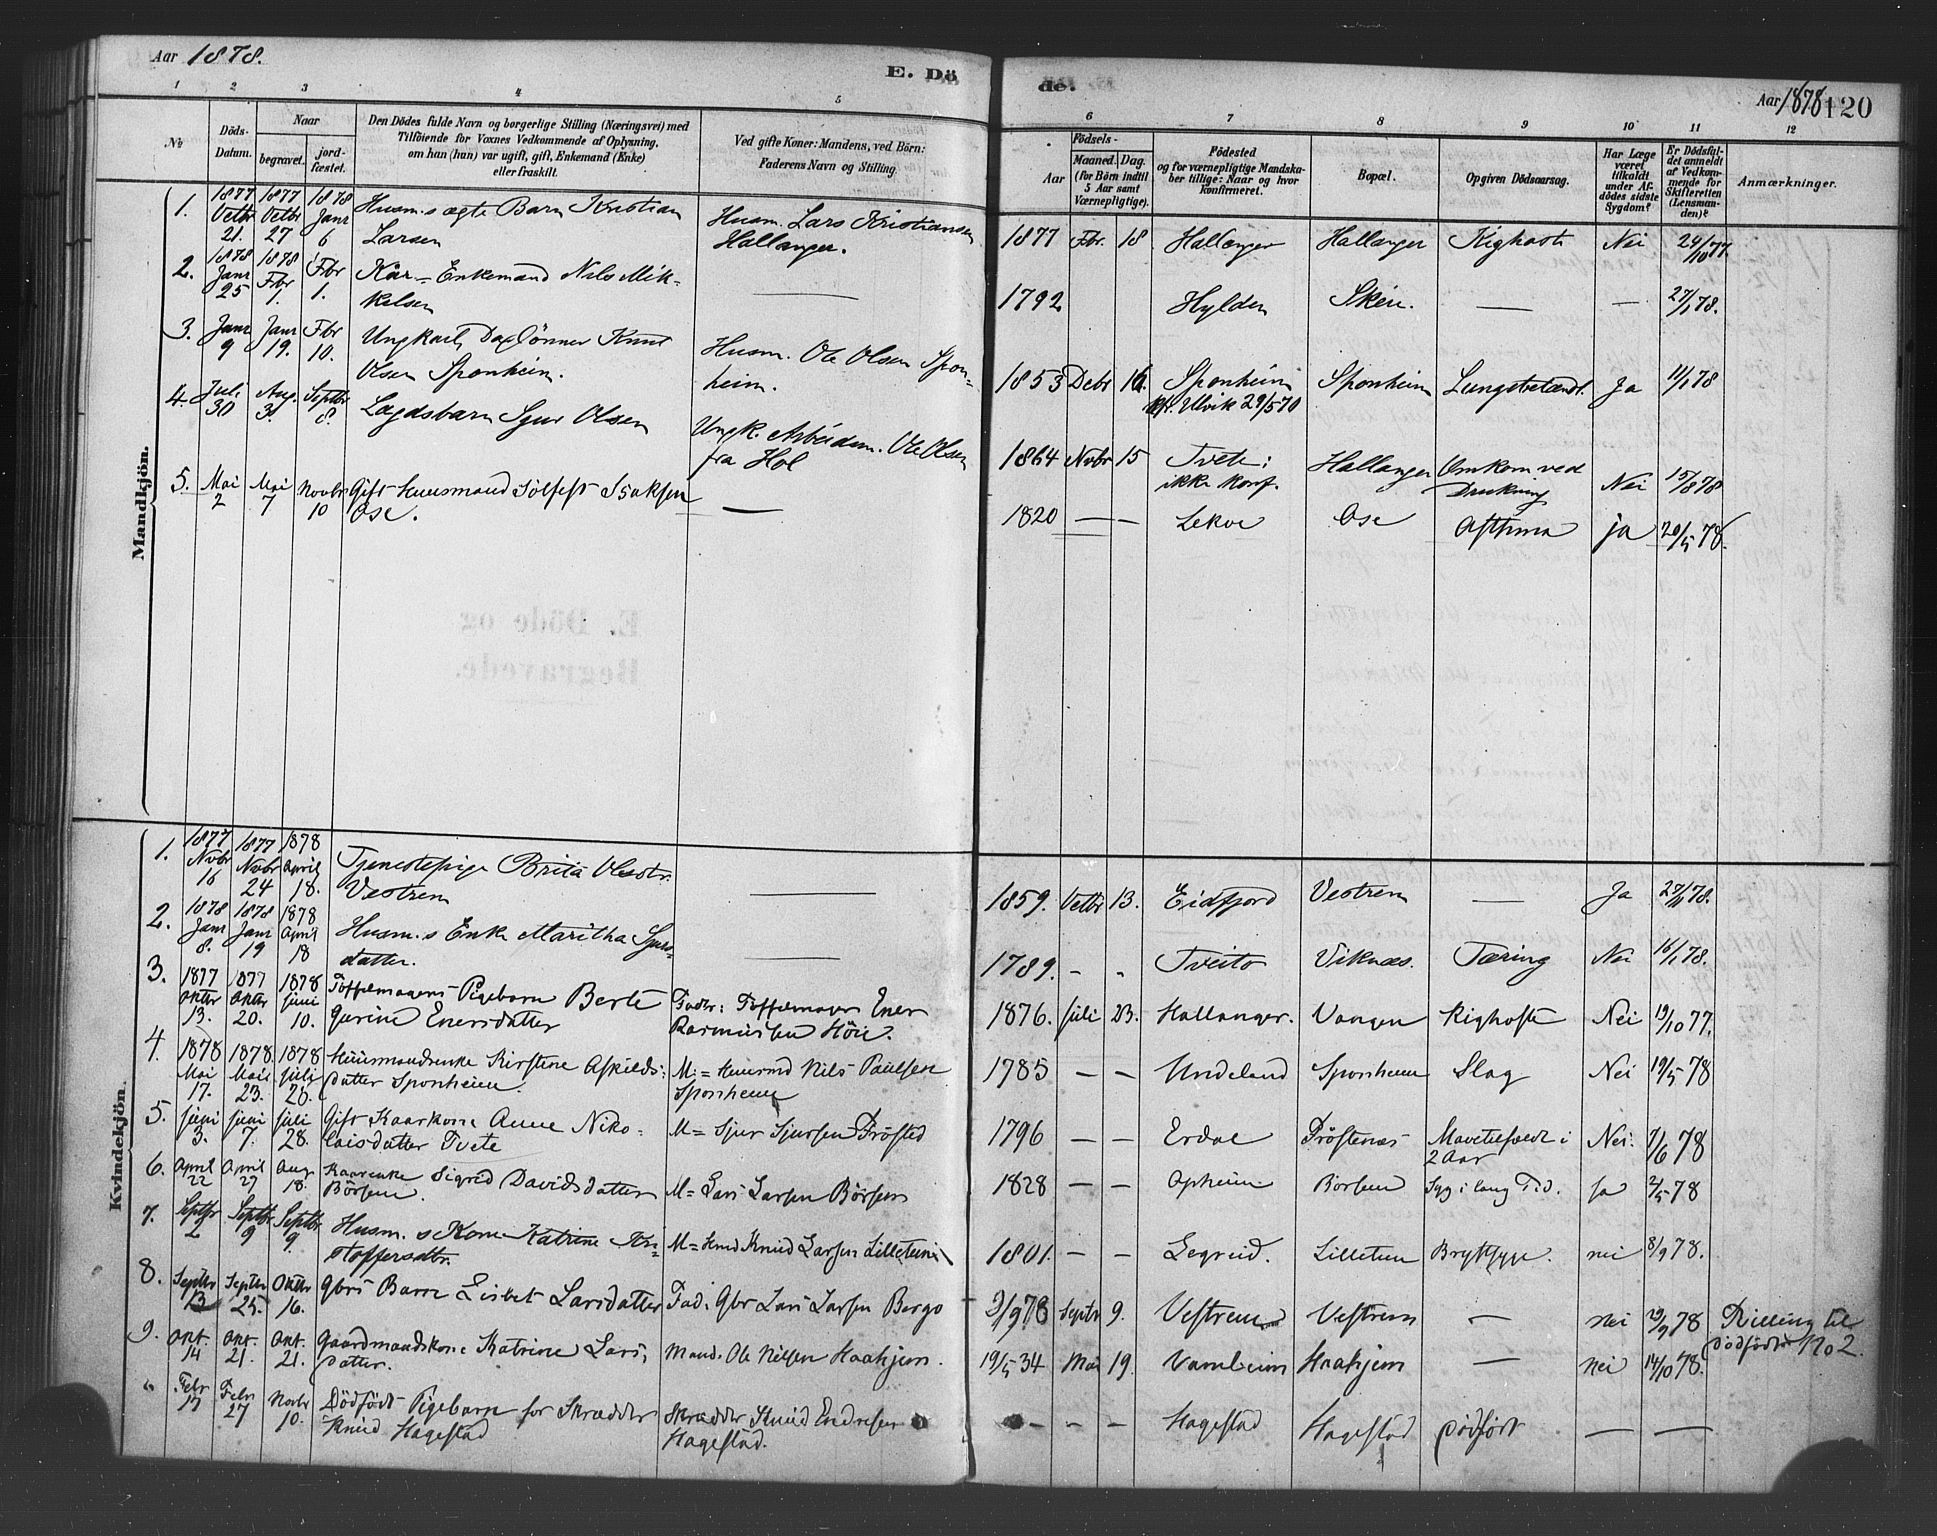 Aar 1878.
E. Dö
de.
Aar 1878 120
1 2 3 4 5 6 7 8 9 10 11 12
No
Döds-Datum.
Naar
begravet.
jord-fæstet.
Den Dödes fulde Navn og borgerlige Stilling (Næringsvei) med
Tilföiende for Voxnes Vedkommende af Oplysning,
om han (hun) var ugift, gift, Enkemand (Enke)
eller fraskilt.
Ved gifte Koner: Mandens, ved Börn:
Faderens Navn og Stilling.
Födsels-
Aar
Maaned. Dag.
(for Börn indtil
5 Aar samt
Værnepligtige).
Födested
og for værnepligtige Mandska-
ber tillige: Naar og hvor
konfirmeret.
Bopæl.
Opgiven Dödsaarsag.
Har Læge
været
tilkaldt
under Af-
dödes sidste
Sygdom?
Er Dödsfal-
det anmeldt
af Vedkom-
mende for
Skifteretten
(Lensman-
den)?
Anmærkninger.
Mandkjön.
1. 1877 Vetbr 21. 1877 Vetbr 27 1878 Janr 6 Husm.s ægte Barn Kristian
Larsen
Husm. Lars Kristiansen
Hallanger.
1877 Fbr. 18 Hallanger Hallanger Kighoste Nei 29/10 77.
2. 1878 Janr 25 1878 Fbr 1. Fbr 1. Kår-Enkemand Nils Mik-
kelsen
—
1792 Hylden Skeie. — — 27/1 78.
3. Janr 9 Janr 19. Fbr 10. Ungkarl, Daglönner Knut
Olsen Sponheim.
Husm. Ole Olsen Spon-
heim.
1853 Debr 16. Sponheim Sponheim Lungebetændt. Ja 11/1 78
kf. Ulvik 29/5 70
4. Juli 30 Aug. 3. Septbr 8. Lægdsbarn Sjur Olsen
Ungk. Arbeidsm. Ole Olsen
fra Hol
1864 Novbr 15 Tveite; Hallanger Omkom ved
ikke konf. Drukning Nei 15/8 78
5. Mai 2 Mai 7 Novbr 10 Gift Huusmand Sölfest Isaksen
Ose.
—
1820 — — Lekve Ose Asthma ja 20/5 78.
E. Döde og
Begravede.
Kvindekjön.
1. 1877 Nvbr 16 1877 Nvbr 24 1878 April 18. Tjenestepige Brita Olesdtr.
Vestrem
—
1859. Vetbr 13. Eidfjord Vestrem — Ja 78.
2. 1878 Janr 8. 1878 Janr 19 1878 April 18 Husm.s Enke Maritha Sjurs-
datter.
—
1789. - - Tveito Viknæs. Tæring Nei 16/1 78.
3. 1877 Oktbr 13. 1877 Oktbr 20. 1878 juni 10. Töffelmagers Pigebarn Berte
Gurine Enersdatter
Fader: Töffelmager Ener
Rasmussen Höie.
1876. juli 23. Hallanger. Vangen Kighoste Nei 19/10 77.
4. 1878 Mai 17. 1878. Mai 23. 1878 juli 28. Huusmandsenke Kirstine Askilds:
datter Sponheim.
M: = Huusmd Nils Paulsen
Sponheim
1785 — — Undeland Sponheim Slag Nei 19/5 78
5. juni 3. juni 7. juli 28. Gift Kaarkone Anne Niko-
laisdatter Tvete
M = Sjur Sjursen Tröfted
1796 — — Erdal Tröftenæs Mavetilfælde i
2 Aar Nei. 7/6 78
6. April 22 April 27 Aug 18. Kaarenke Sigrid Davidsdatter
Börsem.
M = Lars Larsen Börsem
1828 — — Opheim Börsem Syg i lang Tid. ja 2/5 78
7. Septbr 2 Septbr 9 Septbr 9. Husm.s Kone Katrine Kri-
stoffersdtr.
M = Hmd Knud Larsen Lilletuun
1801. — — Legreid. Lilletun Brystsyge. nei 8/9 78.
8. Septbr 13 Septbr 25. Oktbr 16. Gbrs Barn Lisbet Larsdatter
Fad. Gbr Lars Larsen Bergo
9/9 78 Septbr 9. Vestrem Vestrem — nei 29/9 78 Tvilling til
dödfödt No 2.
9. Okt. 14 Okt. 21. Okt. 21. Gaardmandskone Katrine Lars
datter.
Mand. Ole Nilsen Haahjem.
19/5 34 Mai 19. Vambeim Haahjem — nei 14/10 78.
" Febr 17 Febr 27 Novbr 10. Dödfödt Pigebarn for Skrædder
Knud Hagestad
Skrædder Knud Endresen
Hagestad.
— — — Hagestad Hagestad Dödfödt — —